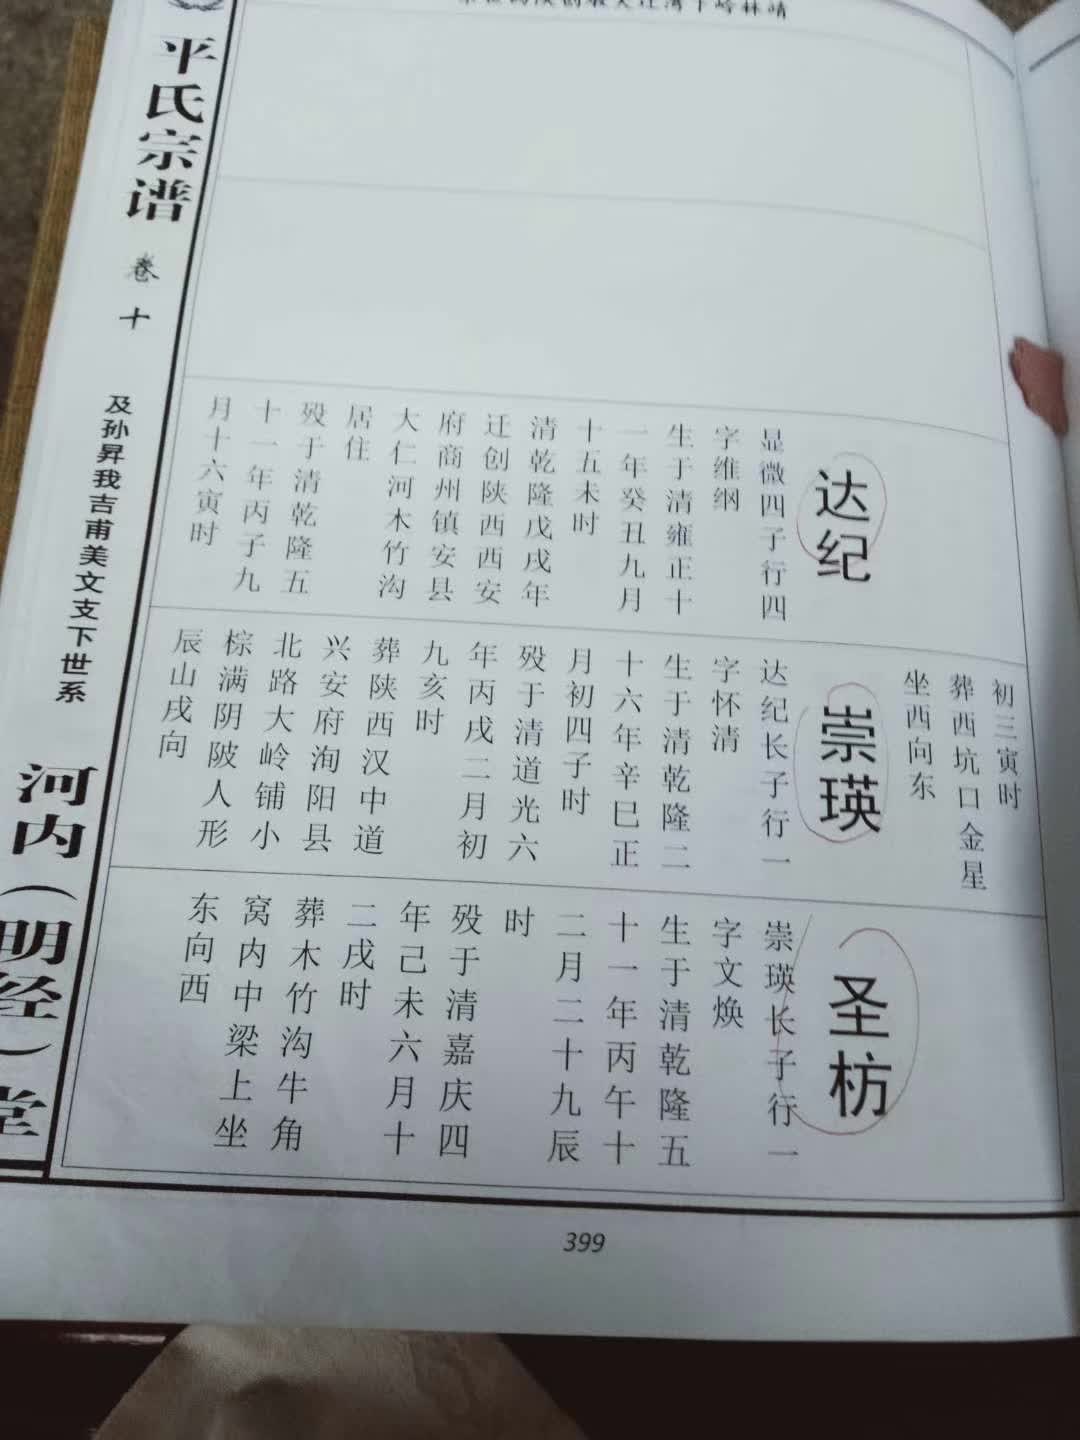 平氏宗谱
卷十
及孙昇我吉甫美文支下世系
河内（明经）堂
达纪
显微四子行四
字维纲
生于清雍正十
一年癸丑九月
十五未时
清乾隆戊戌年
迁创陕西西安
府商州镇安县
大仁河木竹沟
居住
殁于清乾隆五
十一年丙子九
月十六寅时
初三寅时
葬西坑口金星
坐西向东
崇瑛
达纪长子行一
字怀清
生于清乾隆二
十六年辛巳正
月初四子时
殁于清道光六
年丙戌二月初
九亥时
葬陕西汉中道
兴安府洵阳县
北路大岭铺小
棕满阴陂人形
辰山戌向
圣枋
崇瑛长子行一
字文焕
生于清乾隆五
十一年丙午十
二月二十九辰
时
殁于清嘉庆四
年己未六月十
二戌时
葬木竹沟牛角
窝内中梁上坐
东向西
399